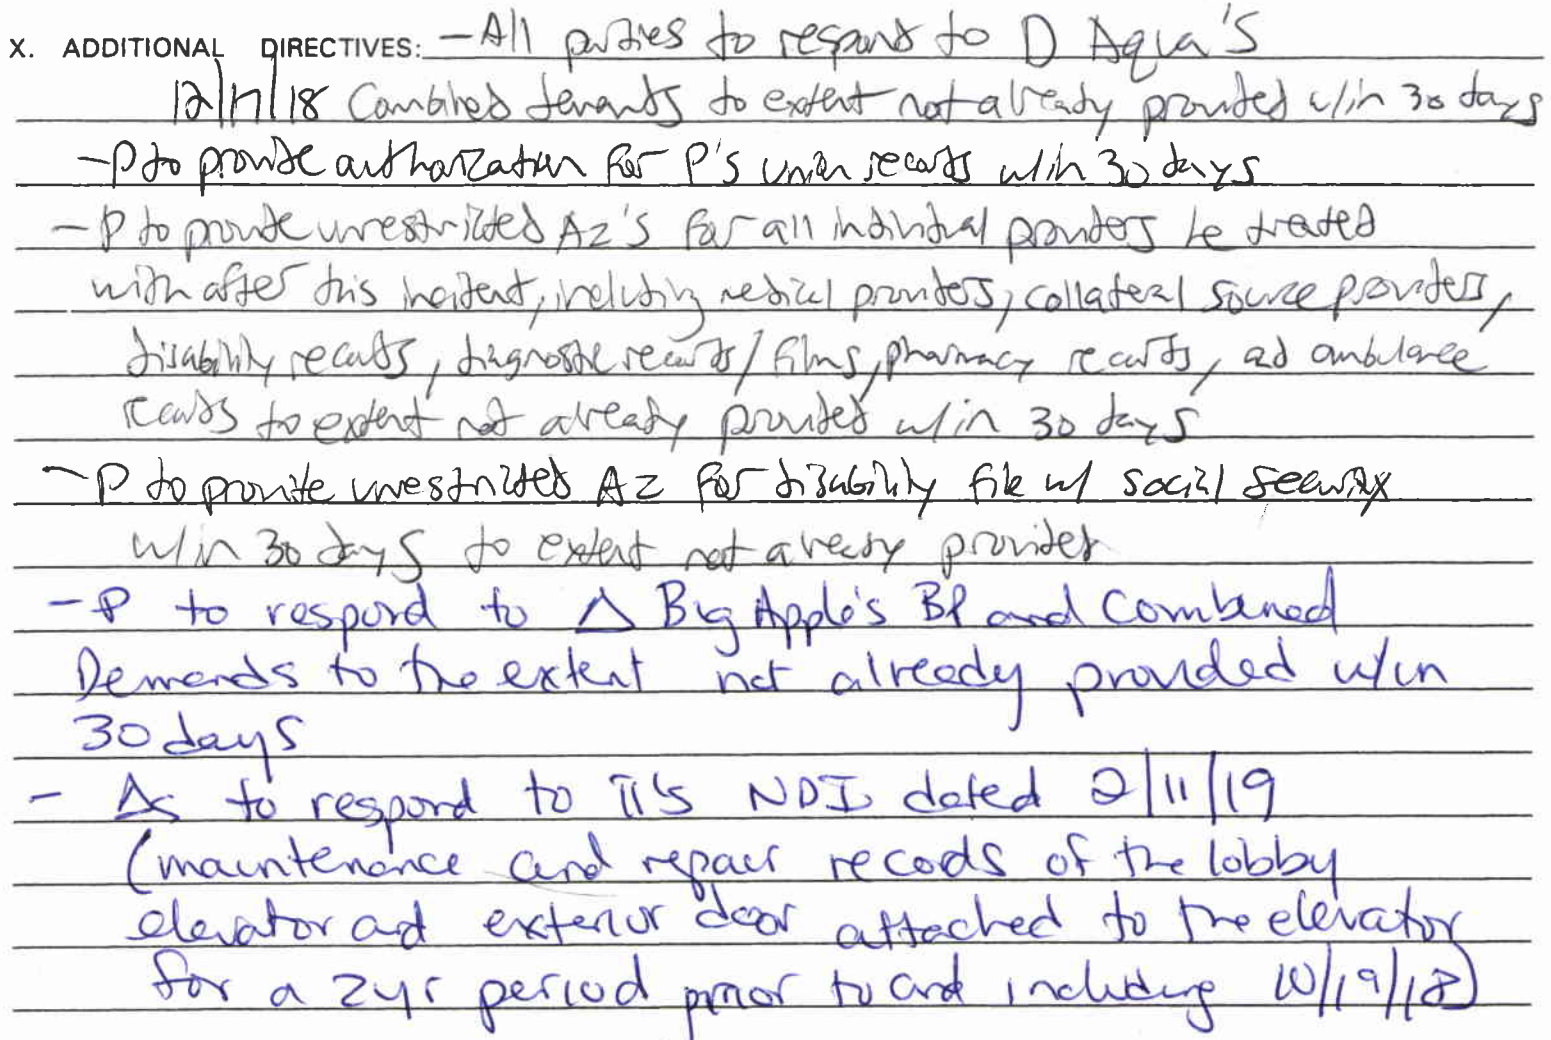 X. ADDITIONAL DIRECTIVES: - All parties to respond to D Aqua's
12/17/18 Combined demands to extent not already provided w/in 30 days
- P to provide authorization for P's union records w/in 30 days
- P to provide unrestricted Az's for all individual providers he treated
with after this incident, including medical providers, collateral source providers,
disability records, diagnostic records/films, pharmacy records, ad ambulance
records to extent not already provided w/in 30 days
- P to provide unrestricted Az for disability file w/ social security
w/in 30 days to extent not already provided
- P to respond to Δ Big Apple's BP and Combined
Demands to the extent not already provided w/in
30 days
- Δs to respond to π's NDI dated 2/11/19
(maintenance and repair records of the lobby
elevator and exterior door attached to the elevator
for a 2yr period prior to and including 10/19/18)